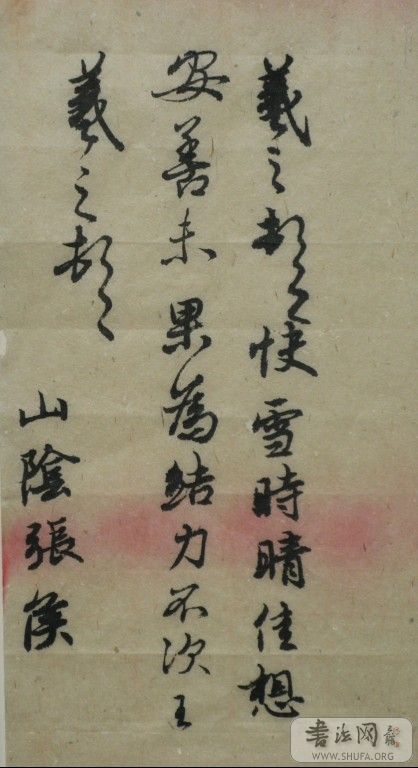 羲之頓首快雪時晴佳想
安善未果為結力不次王
羲之頓首
山陰張侯
書法网
WWW.SHUFA.ORG